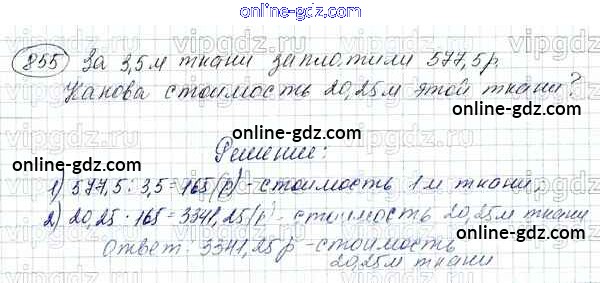 online-gdz.com
855 За 3,5 м ткани заплатили 577,5 р.
Какова стоимость 20,25 м этой ткани?
online-gdz.com
online-gdz.com
Решение:
online-gdz.com
1) 577,5 : 3,5 = 165 (р) - стоимость 1 м ткани.
online-gdz.com
2) 20,25 · 165 = 3341,25 (р) - стоимость 20,25 м ткани
Ответ: 3341,25 р - стоимость
20,25 м ткани
online-gdz.com